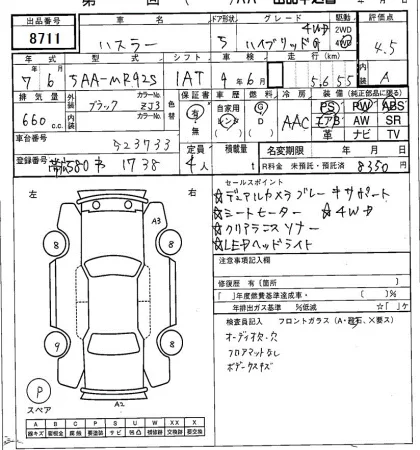 出品番号 車名 ドア形状 グレード 駆動 評価点
8711 ハスラー 5 4WD ハイブリッドG 2WD 4WD 4.5
年式 型式 シフト 車検 走行(km)
7年6月 5AA-MR92S IAT 4年6月 5,655 A
排気量 外装 内装 カラーNo. 色替 保証書 車歴 燃料 冷房 装備 (純正部品に限る)
660 c.c. ブラック ZJ3 有・無 自家用 レンタ G D AAC PS PW ABS
カラーNo. エアB AW SR
革 ナビ TV
車台番号 523733 定員 4人 積載量 名変期限 年 月 日
登録番号 帯広580 1738 R料金 未預託・預託済 8350円
左 右
セールスポイント
☆デュアルカメラブレーキサポート
☆シートヒーター ☆4WD
☆クリアランスソナー
☆LEDヘッドライト
注意事項記入欄
修復歴 有(箇所 )
「 」年度燃費基準達成車・ ( )%
年排出ガス基準 %低減 ☆「 」ケ
検査員記入 フロントガラス(A・飛石、X要ス)
オーディオ欠・穴
フロアマットなし
ボデークスキズ
A3
8 8
9 8
P
スペア
A2
A B C P S U W X XX
線キズ 要板金 腐蝕 要塗装 サビ 凹凸 補修跡 交換跡 要交換